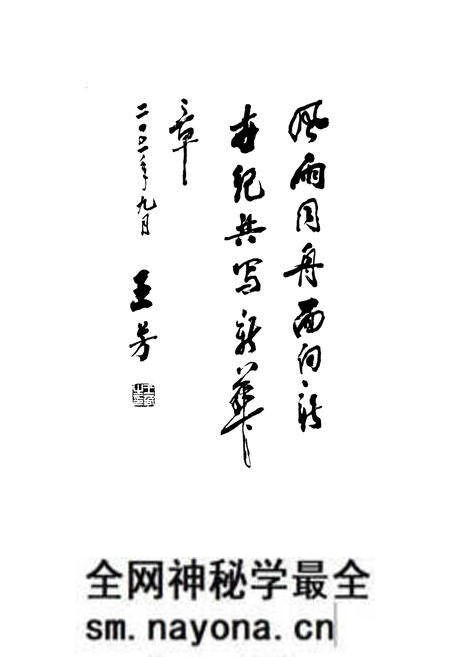 风雨同舟面向新
世纪共写新华
章
二〇〇一年九月
王芳
全网神秘学最全
sm.nayona.cn